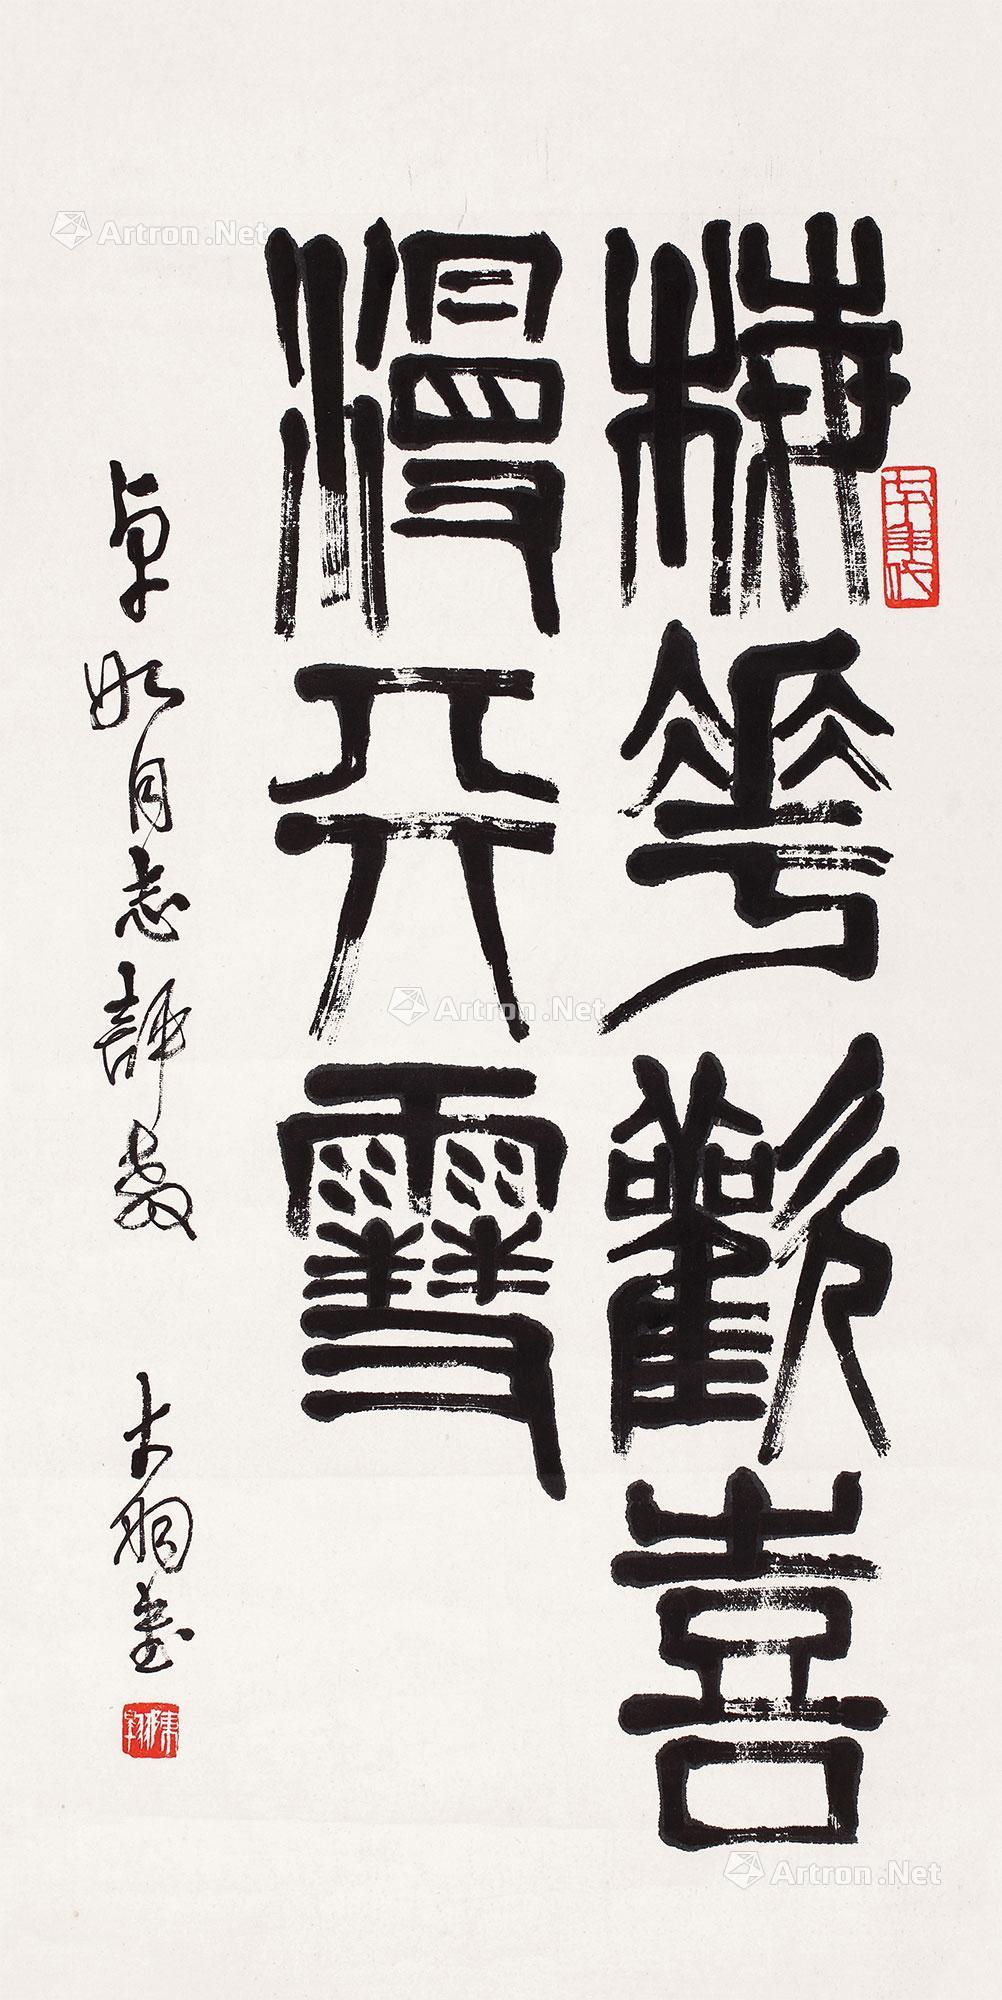 梅花歡喜
漫天雪
卓如同志評教
大羽書
Artron.Net
Artron.Net
Artron.Net